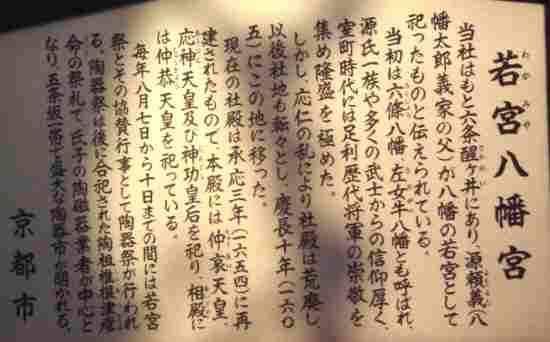 若宮八幡宮
わかみや
当社はもと六条醒ヶ井にあり、源頼義(八
幡太郎義家の父)が八幡の若宮として
祀ったものと伝えられている。
当初は六條八幡、左女牛八幡とも呼ばれ、
源氏一族や多くの武士からの信仰厚く、
室町時代には足利歴代将軍の崇敬を
集め隆盛を極めた。
しかし、応仁の乱により社殿は荒廃し、
以後社地も転々とし、慶長十年(一六〇
五)にこの地に移った。
現在の社殿は承応三年(一六五四)に再
建されたもので、本殿には仲哀天皇、
応神天皇及び神功皇后を祀り、相殿に
は仲恭天皇を祀っている。
毎年八月七日から十日までの間には若宮
祭とその協賛行事として陶器祭が行われ
る。陶器祭は後に合祀された陶祖椎根津彦
命の祭礼で、氏子の陶磁器業者が中心と
なり、五条坂一帯で盛大な陶器市が開かれる。
京都市